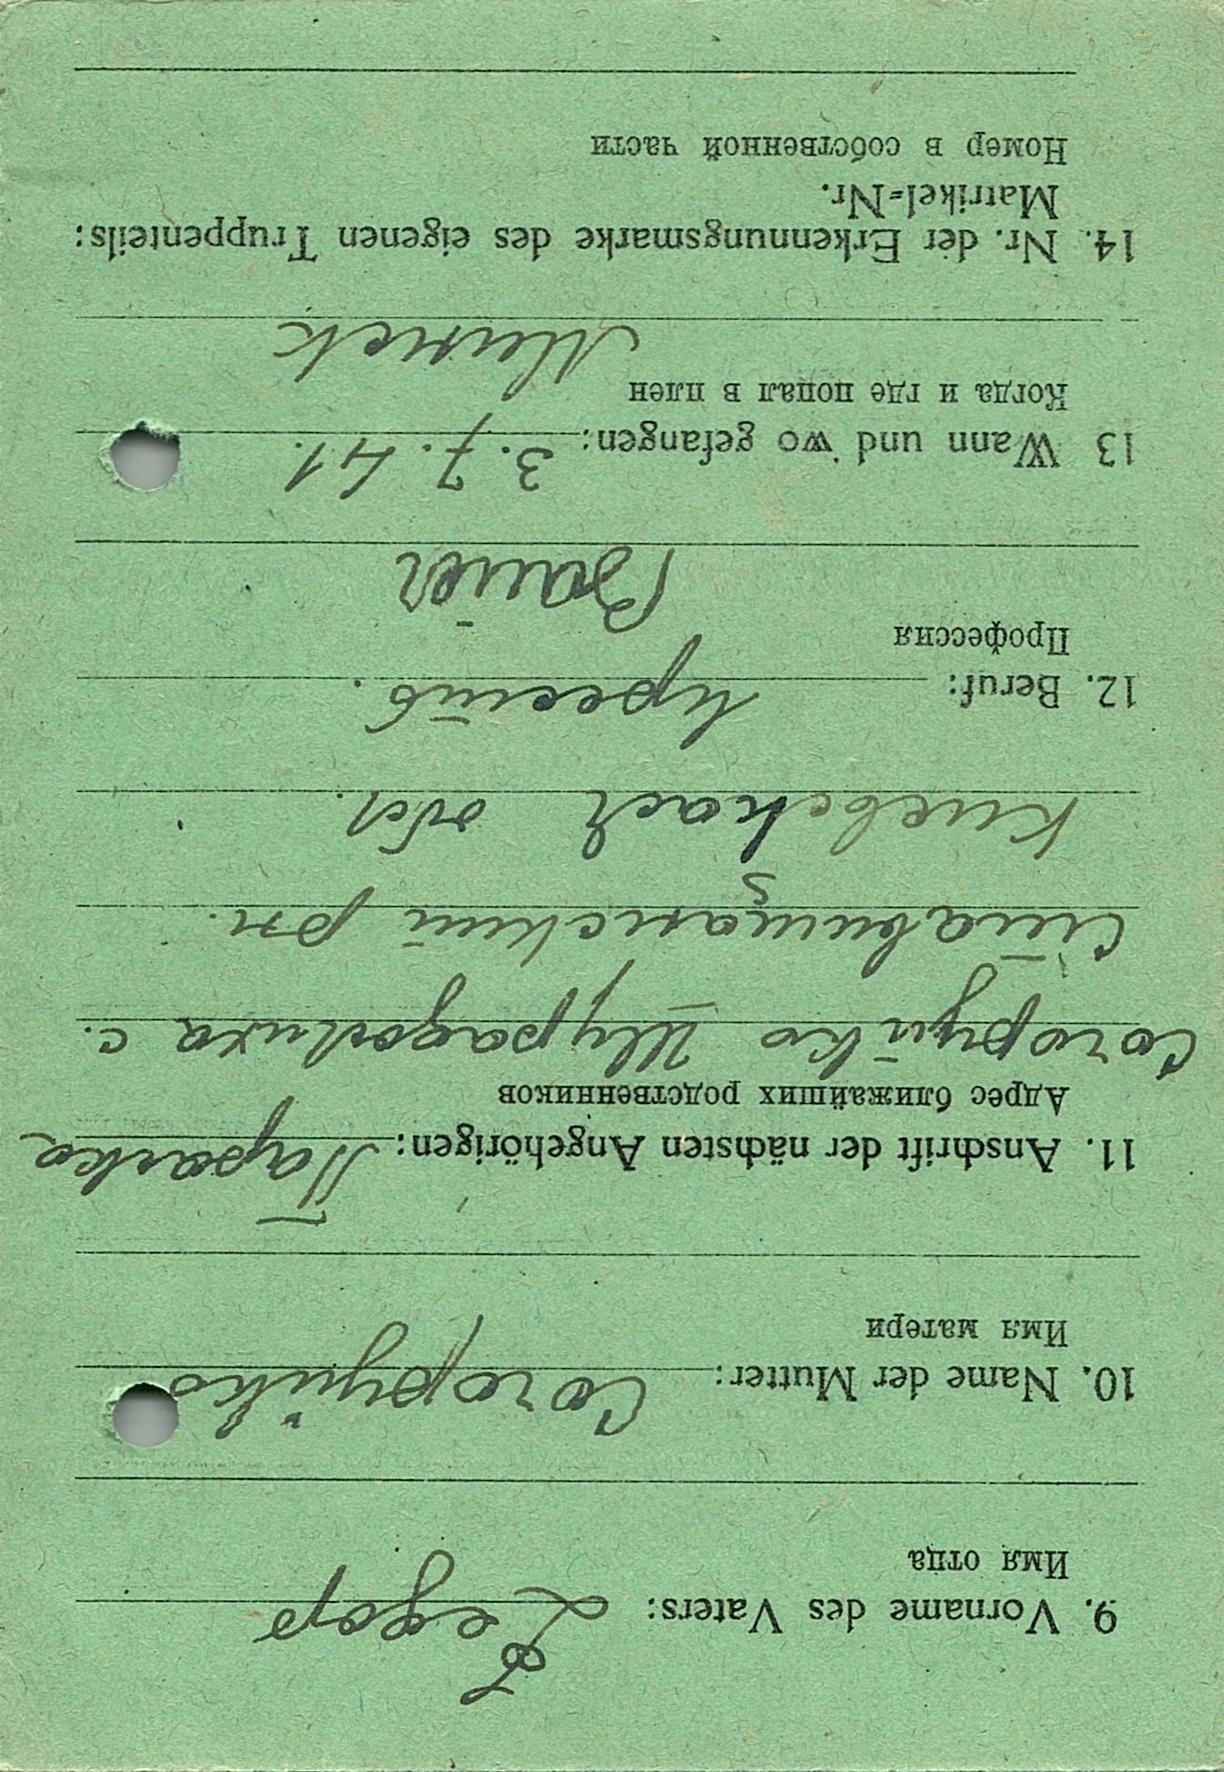 9. Vorname des Vaters: Федор
Имя отца
10. Name der Mutter:
Имя матери
11. Anschrift der nächsten Angehörigen: Параска
Адрес ближайших родственников
с.
Ставищанский рн.
Киевская обл.
12. Beruf: крестб.
Профессия
Bauer
13 Wann und wo gefangen: 3.7.41.
Когда и где попал в плен
Минск
14. Nr. der Erkennungsmarke des eigenen Truppenteils:
Matrikel=Nr.
Номер в собственной части